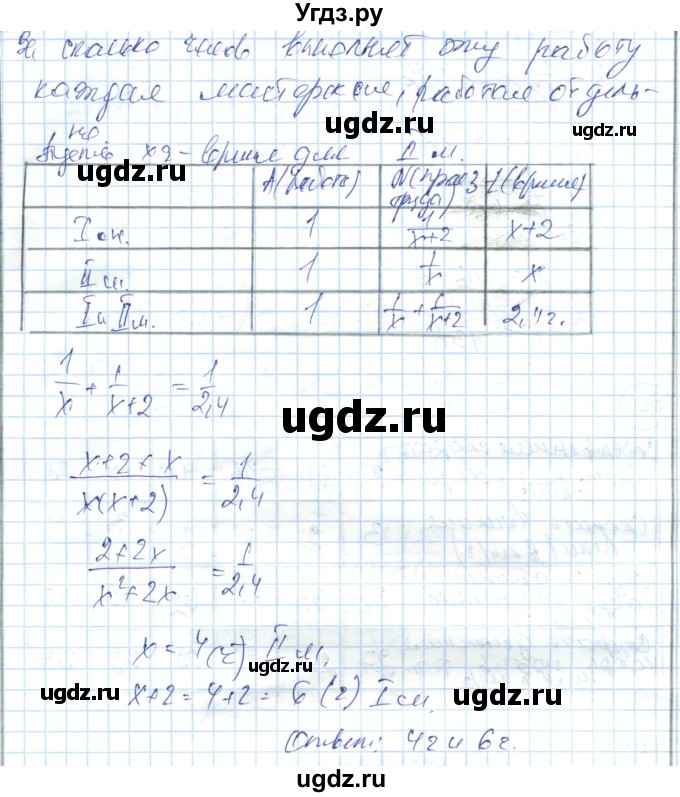 Угдз.ру
За сколько часов выполняет эту работу
каждая мастерская, работая отдель-
но
ugdz.ru ugdz.ru
Пусть x ч - время для II м.
A(работа) N(произ. труда) t(время)
I м. 1 1/(x+2) x+2
II м. 1 1/x x
I и II м. 1 1/x + 1/(x+2) 2,4 ч.
1/x + 1/(x+2) = 1/2,4
ugdz.ru
(x+2+x)/(x(x+2)) = 1/2,4
ugdz.ru
(2+2x)/(x²+2x) = 1/2,4
x = 4 (ч) II м.
ugdz.ru
x+2 = 4+2 = 6 (ч) I м.
ugdz.ru
Ответ: 4ч и 6ч.
ugdz.ru